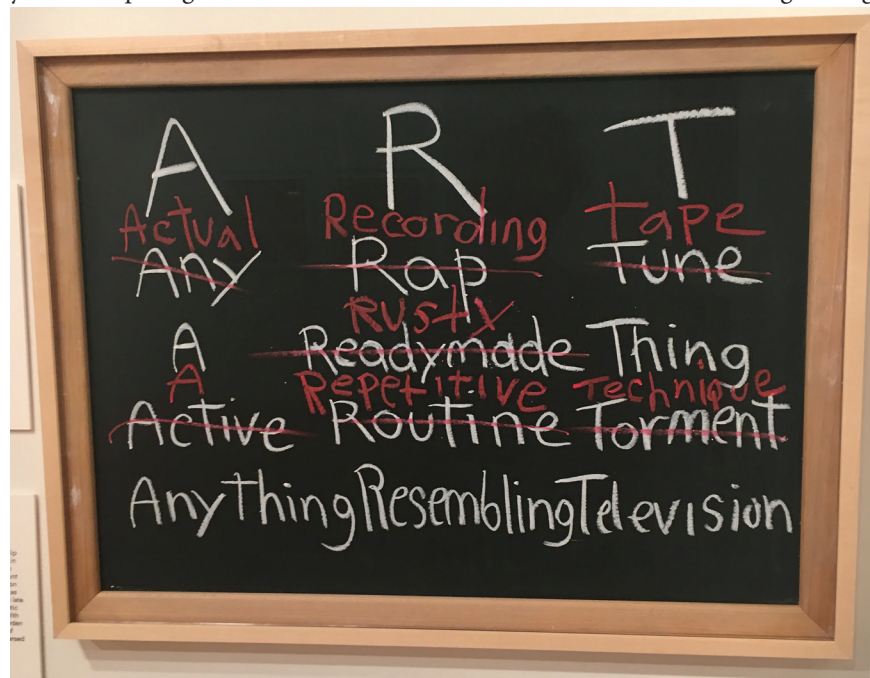 A R T
Actual Recording tape
Any Rap Tune
Rusty
A Readymade Thing
A Repetitive Technique
Active Routine Torment
AnythingResemblingTelevision